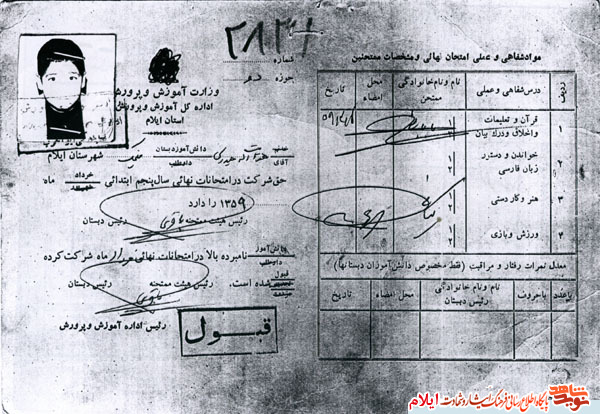 ۲۸۳۱
شماره
حوزه شهر
وزارت آموزش و پرورش
اداره کل آموزش و پرورش
استان ایلام
شهرستان ایلام
آقای
دانش‌آموز دبستان
داوطلب
حق شرکت در امتحانات نهائی سال پنجم ابتدائی خرداد ماه
۱۳۵۹ را دارد
رئیس هیئت ممتحنه رئیس دبستان
دانش‌آموز
داوطلب
نامبرده بالا در امتحانات نهائی خرداد ماه شرکت کرده
قبول
شده است.
رئیس هیئت ممتحنه رئیس دبستان
قبول
رئیس اداره آموزش و پرورش
مواد شفاهی و عملی امتحان نهائی و مشخصات ممتحنین
ردیف درس شفاهی و عملی نام و نام خانوادگی ممتحن محل امضاء تاریخ
۱ قرآن و تعلیمات
و اخلاق و درک بیان
۲ خواندن و دستور
زبان فارسی
۳ هنر و کار دستی
۴ ورزش و بازی
معدل نمرات رفتار و مراقبت (فقط مخصوص دانش آموزان دبستانها)
با عدد با حروف نام و نام خانوادگی رئیس دبستان محل امضاء تاریخ
نوید شاهد
پایگاه اطلاع رسانی فرهنگ ایثار و شهادت ایلام